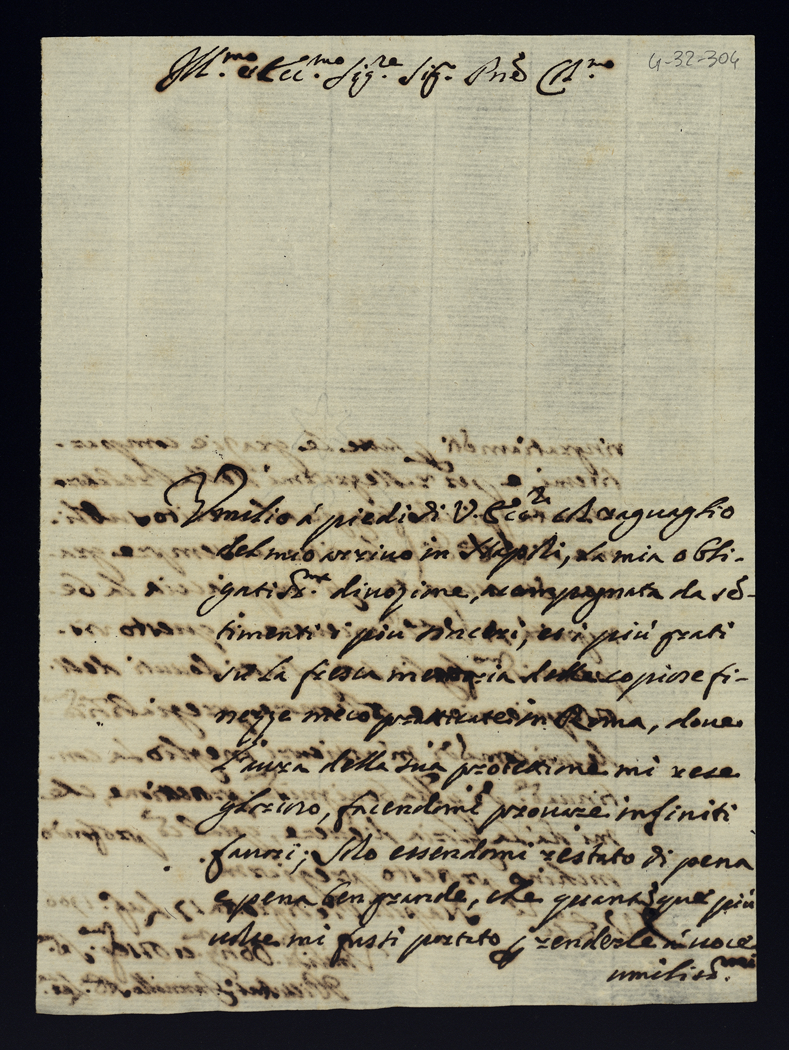 Ill.mo et Ecc.mo Sig.re Sig.r Pne Col.mo
4-32-304
Umilio á piedi di V. Ecc.za col raguaglio
del mio arrivo in Napoli, la mia obli-
gatis.ma divozione, acompagnata da sẽ-
timenti i più sinceri, et i più grati
sù la fresca memoria delle copiose fi-
nezze meco pratticate in Roma, dove
l'aura della sua protezzione mi rese
glorioso, facendomi provare infiniti
favori; solo essendomi restato di pena
e pena ben grande, che quantũque più
volte mi fusti portato p renderle á voce
umilis.mi